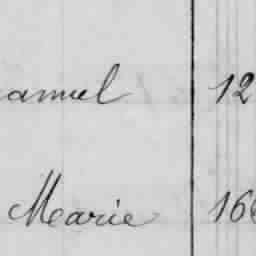 amuel 12
Marie 16